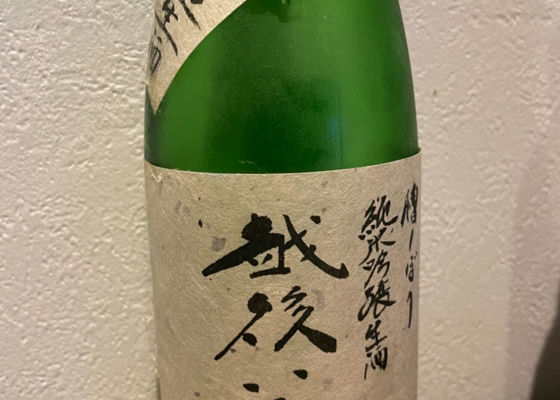 槽しぼり
純米吟醸生酒
越後